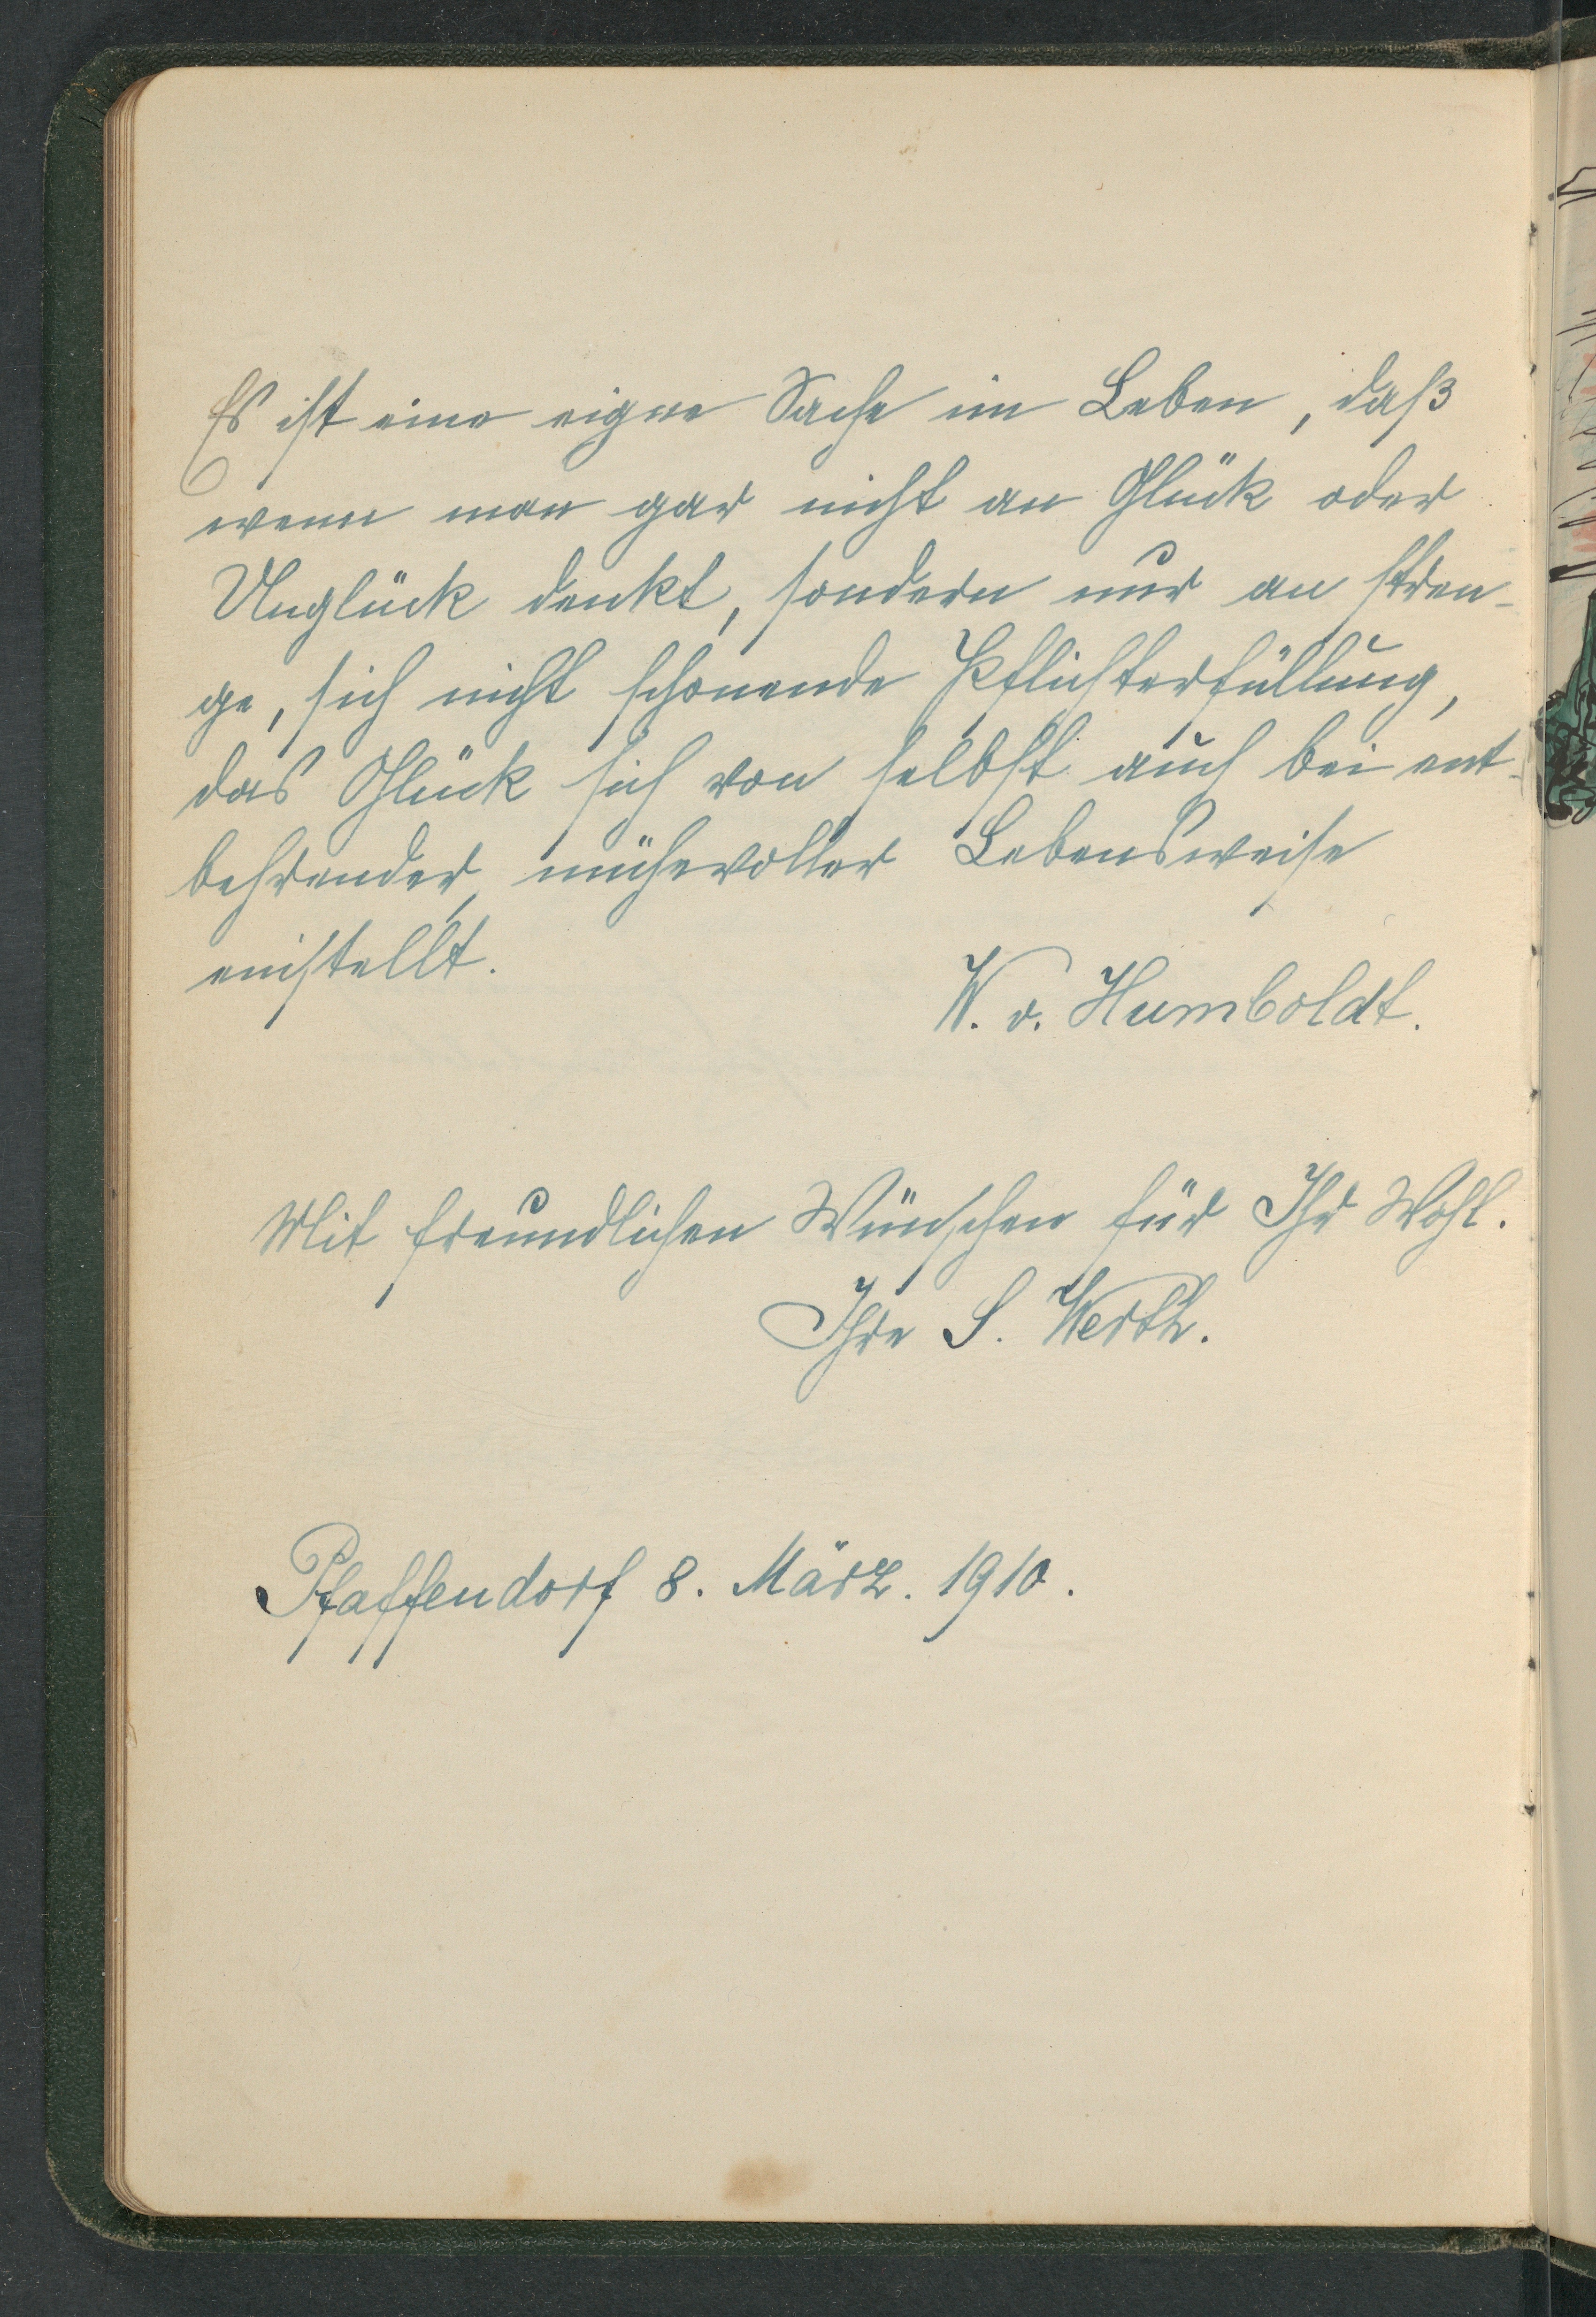 Es ist eine eigne Sache im Leben, daß
wenn man gar nicht an Glück oder
Unglück denkt, sondern nur an stren-
ge, sich nicht schonende Pflichterfüllung,
das Glück sich von selbst auch bei ent-
behrender, mühevoller Lebensweise
einstellt.
W. v. Humboldt.
Mit freundlichen Wünschen für Ihr Wohl.
Ihre S. Werth.
Pfaffendorf 8. März. 1910.